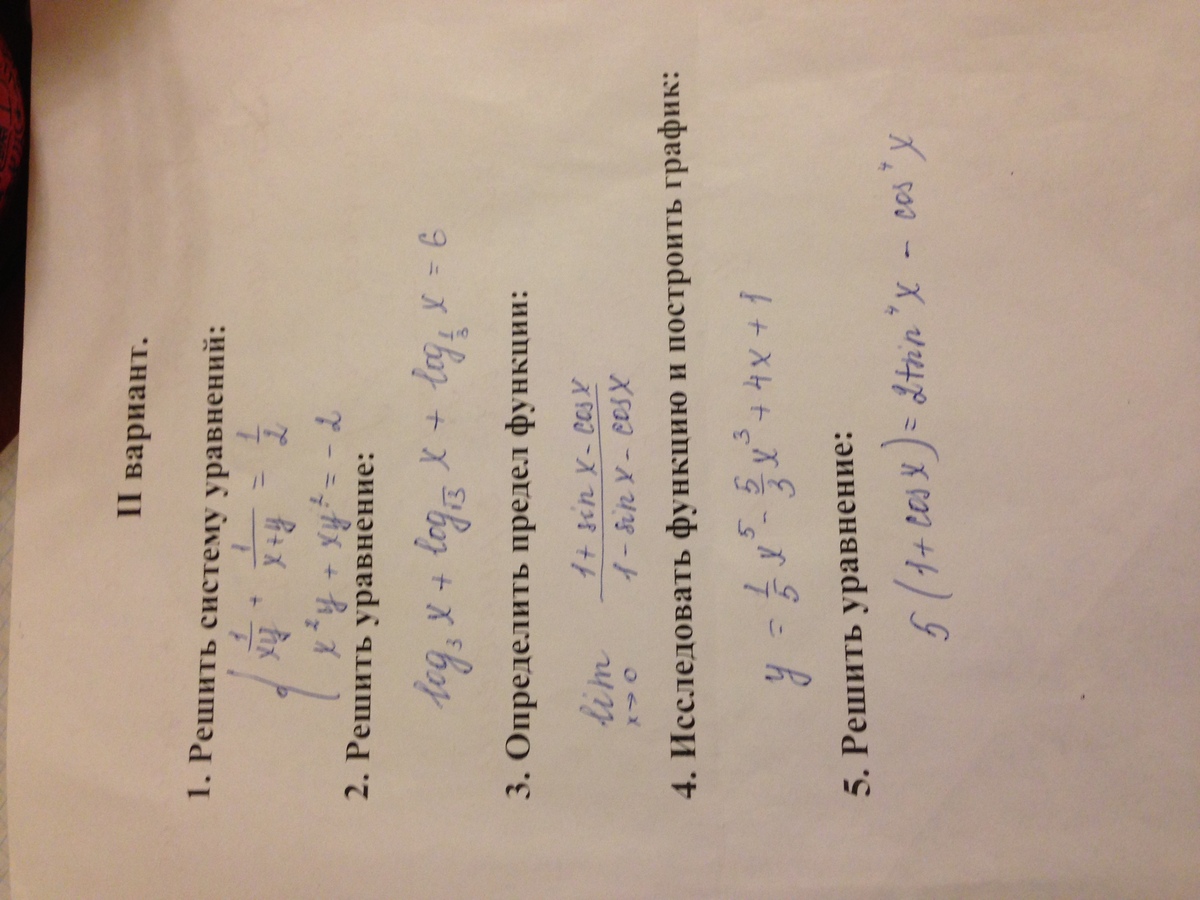 II вариант.
1. Решить систему уравнений:
{ 1/xy + 1/x+y = 1/2
x²y + xy² = -2
2. Решить уравнение:
log₃ x + log_√3 x + log_1/3 x = 6
3. Определить предел функции:
lim x→0 1+ sin x - cos x / 1 - sin x - cos x
4. Исследовать функцию и построить график:
y = 1/5 x⁵ - 5/3 x³ + 4x + 1
5. Решить уравнение:
5 (1+ cos x) = 2+sin⁴x - cos⁴x